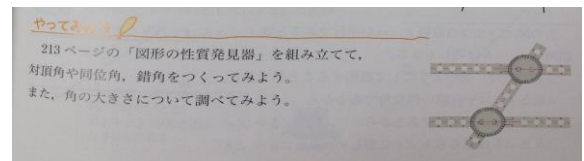 やってみよう
213ページの「図形の性質発見器」を組み立てて，
対頂角や同位角，錯角をつくってみよう。
また，角の大きさについて調べてみよう。